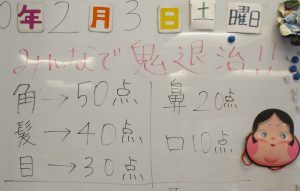 年2月3日土曜日
みんなで鬼退治!!
角→50点
髪→40点
目→30点
鼻20点
口10点